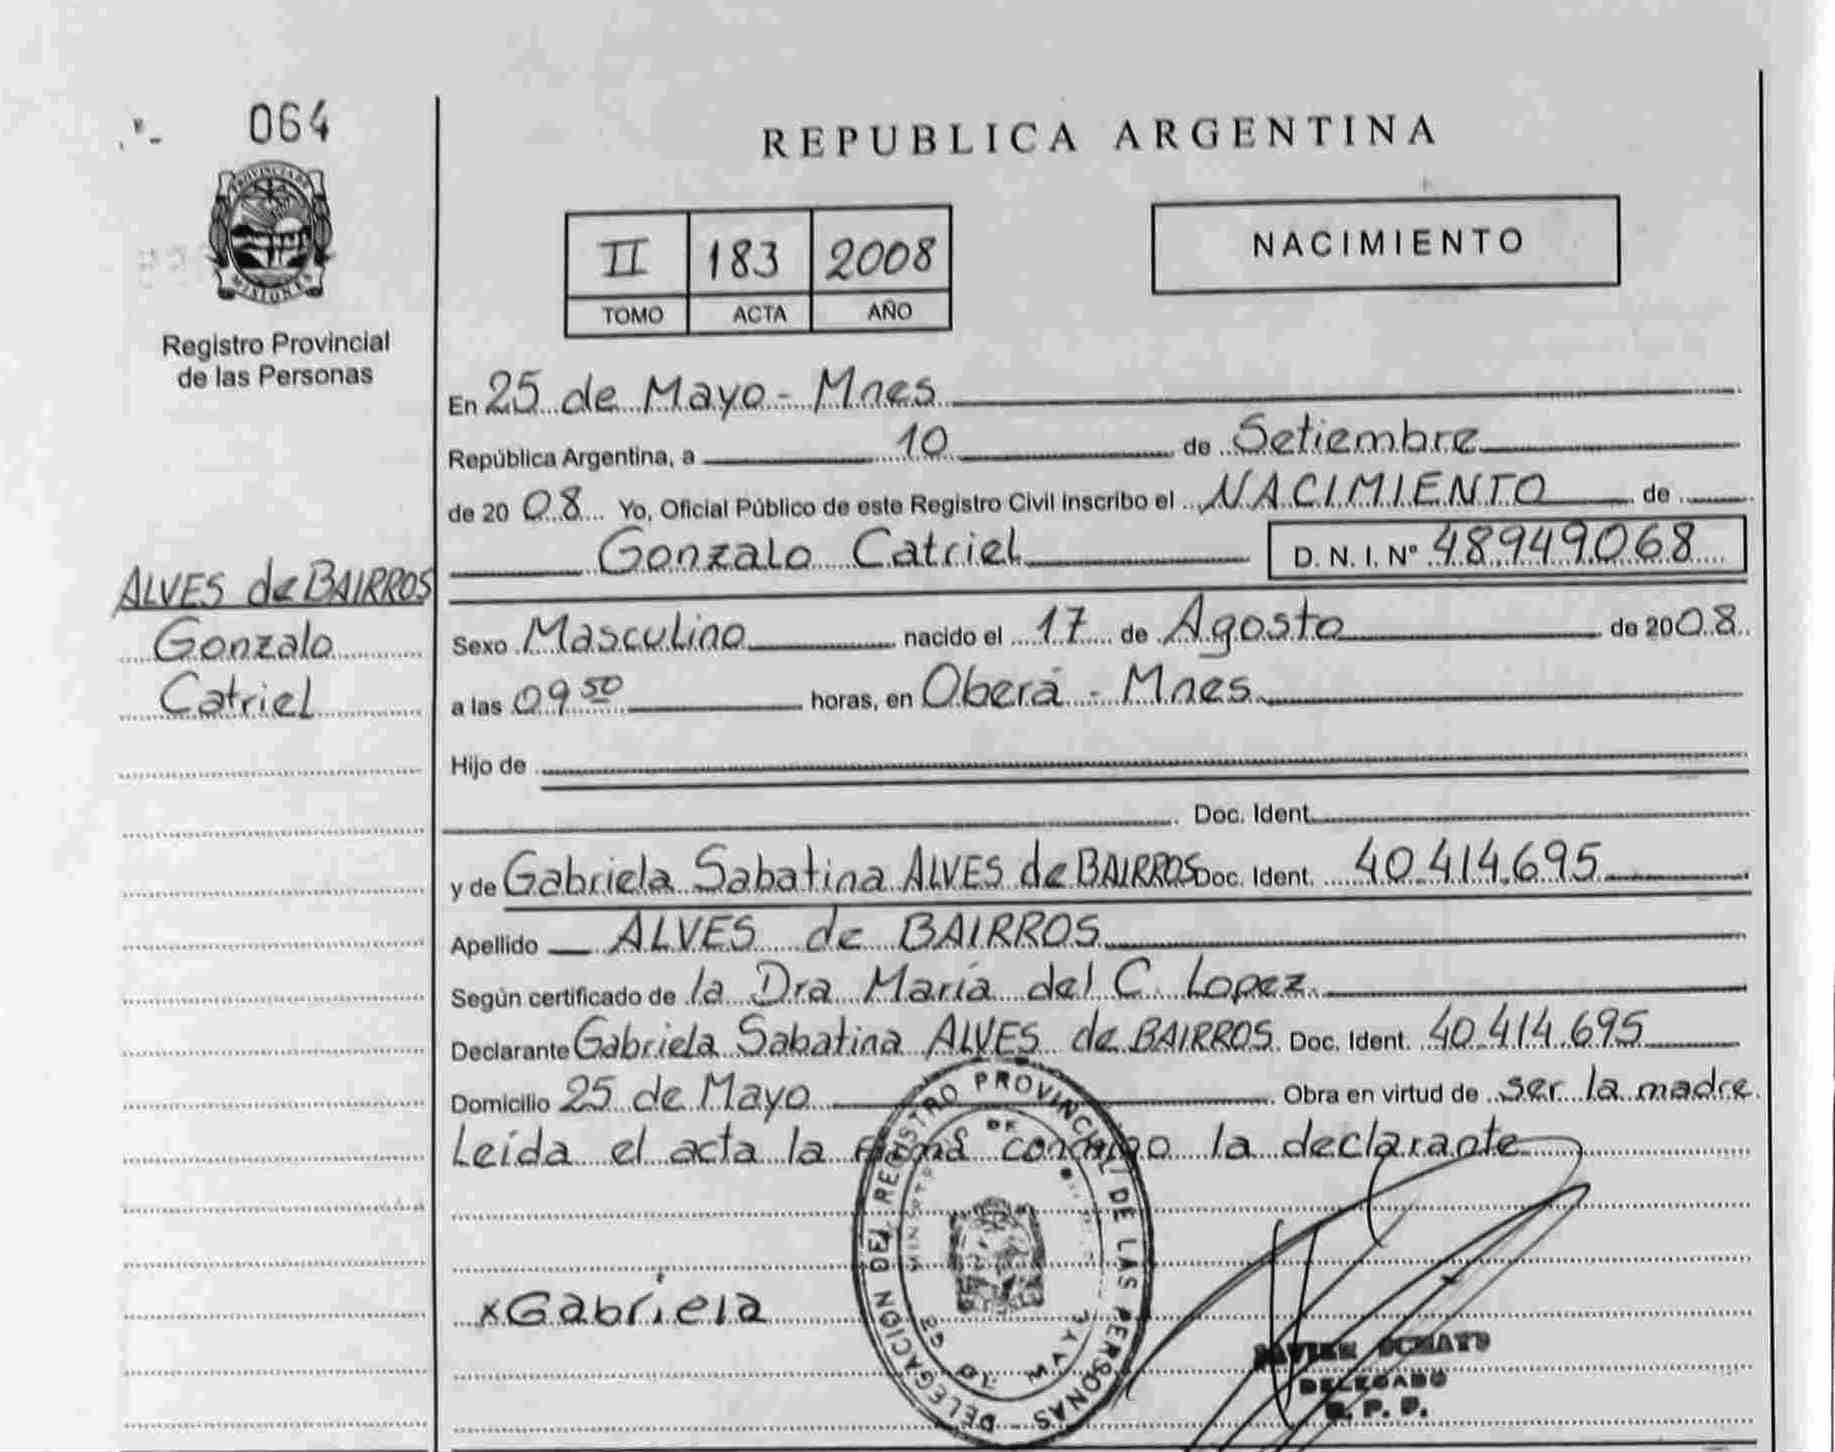 064
PROVINCIA DE
MISIONES
Registro Provincial
de las Personas
ALVES de BAIRROS
Gonzalo
Catriel
REPUBLICA ARGENTINA
II 183 2008
TOMO ACTA AÑO
NACIMIENTO
En 25 de Mayo - Mnes
República Argentina, a 10 de Setiembre
de 20 08 Yo, Oficial Público de este Registro Civil inscribo el NACIMIENTO de
Gonzalo Catriel D. N. I. Nº 48949068
Sexo Masculino nacido el 17 de Agosto de 2008
a las 09 50 horas, en Oberá - Mnes
Hijo de
Doc. Ident.
y de Gabriela Sabatina ALVES de BAIRROS Doc. Ident. 40.414.695
Apellido ALVES de BAIRROS
Según certificado de la Dra María del C. Lopez
Declarante Gabriela Sabatina ALVES de BAIRROS Doc. Ident. 40.414.695
Domicilio 25 de Mayo Obra en virtud de ser la madre
Leída el acta la firma conmigo la declarante
xGabriela
DELEGACION DEL REGISTRO PROVINCIAL DE LAS PERSONAS
25 DE MAYO
JAVIER
DELEGADO
R. P. P.